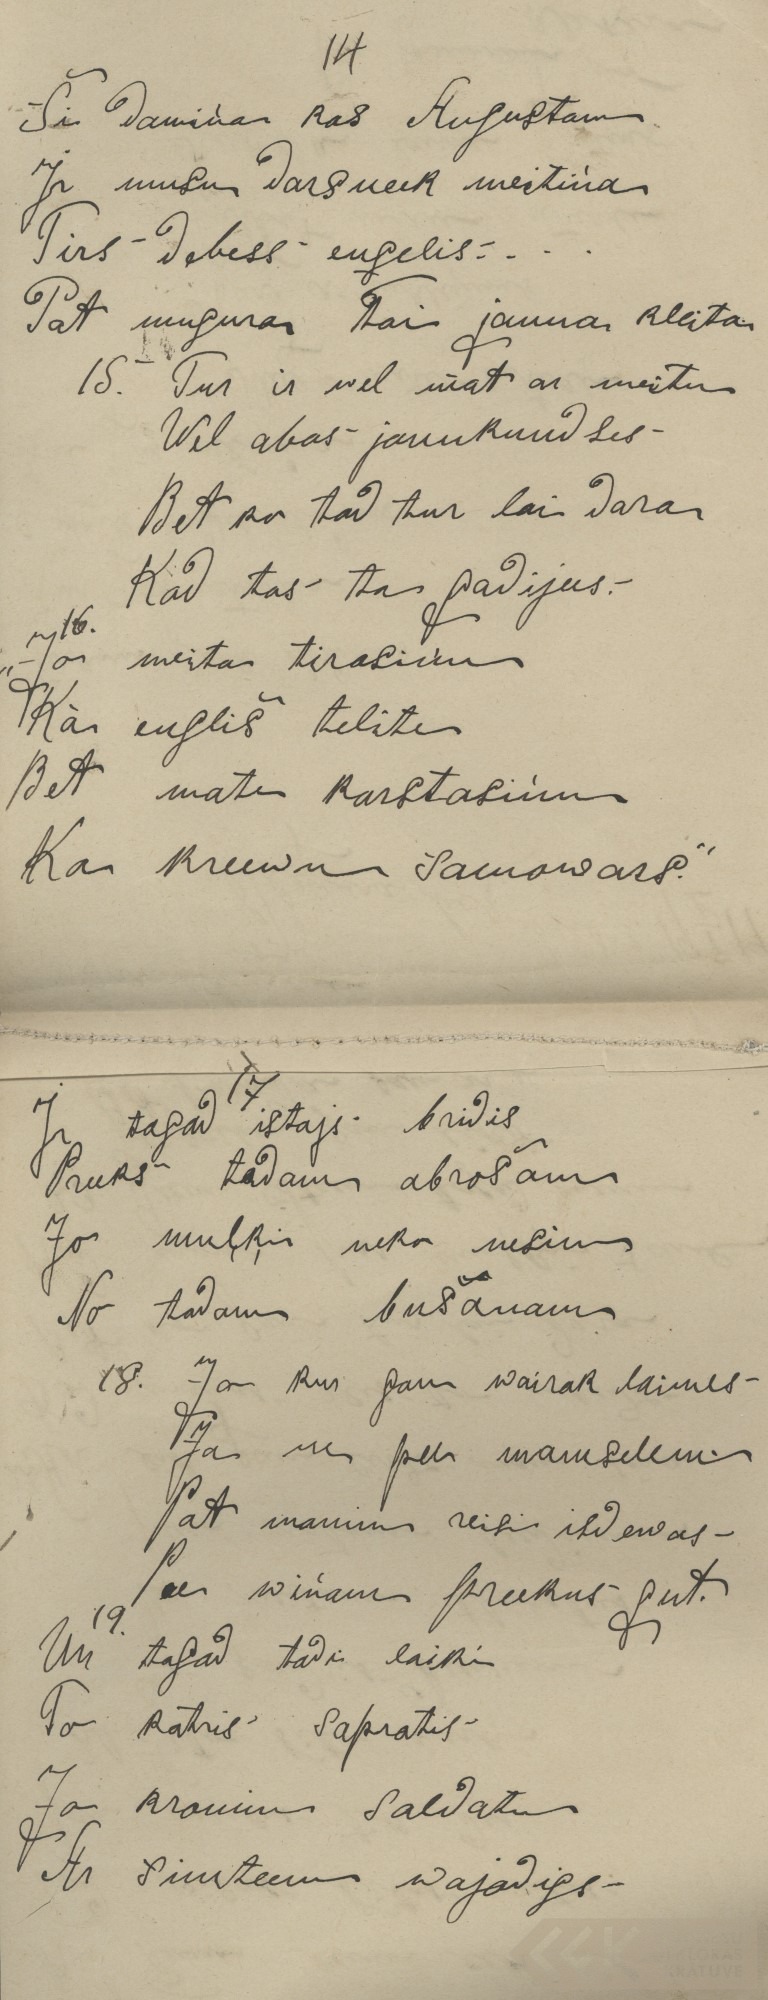 14
Ši damiņa kas Augustam
Jr musu darsneek meitiņa
Tirs debess engelis- . . .
Pat mugura tai jauna kleita
15. Tur ir wel māt ar meitu
Wel abas jaunkundses
Bet ko tad tur lai dara
Kad tas ta gadijus.-
16.
„Ja meita tirasinu
Kà engliš telite
Bet mate karstasinu
Ka kreewu samowars."
17
Jr tagad istajs bridis
Preeks tādam abrošam
Jo muļķi neko nesin
No tadam bušanam
18. Ja kur gan wairak laimes
Ja ne pee mamselem
Pat manim reisi isdewas
Pee winam preekus gut.
19.
Un tagad tadi laiki
To katris sapratis
Jo kronim saldatu
Ar simteem wajadigs